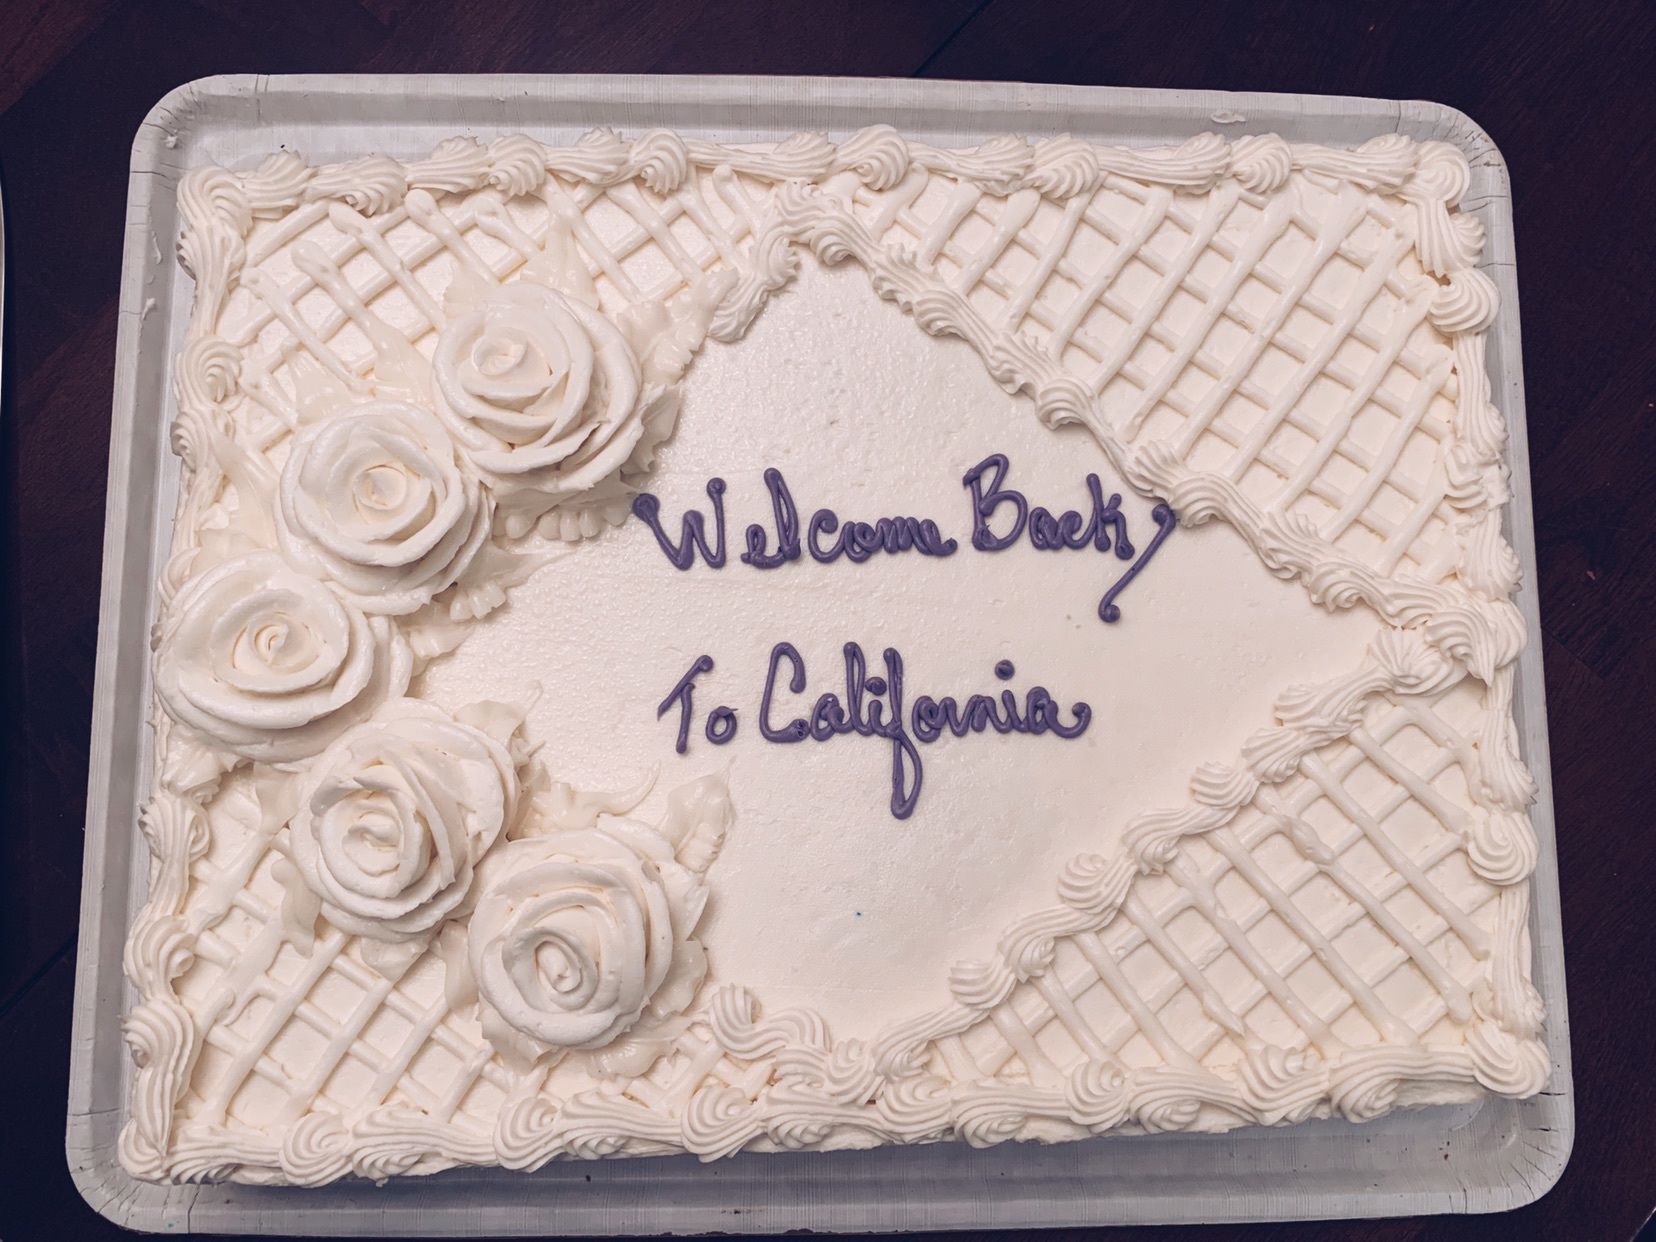 Welcome Back,
To California